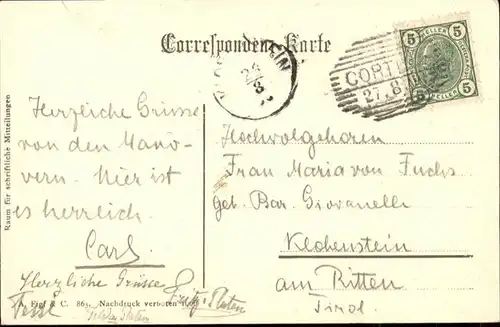 Correspondenz-Karte
5 HELLER 5
5 HELLER 5
CORT
27.8.
Raum für schriftliche Mitteilungen
Herzliche Grüsse
von den Manö-
vern. Hier ist
es herrlich.
Carl
Herzliche Grüsse
Hochwolgeboren
Frau Maria von Fuchs
geb. Bar. Giovanelli
Klobenstein
am Ritten
Tirol.
& C. 86 Nachdruck verboten